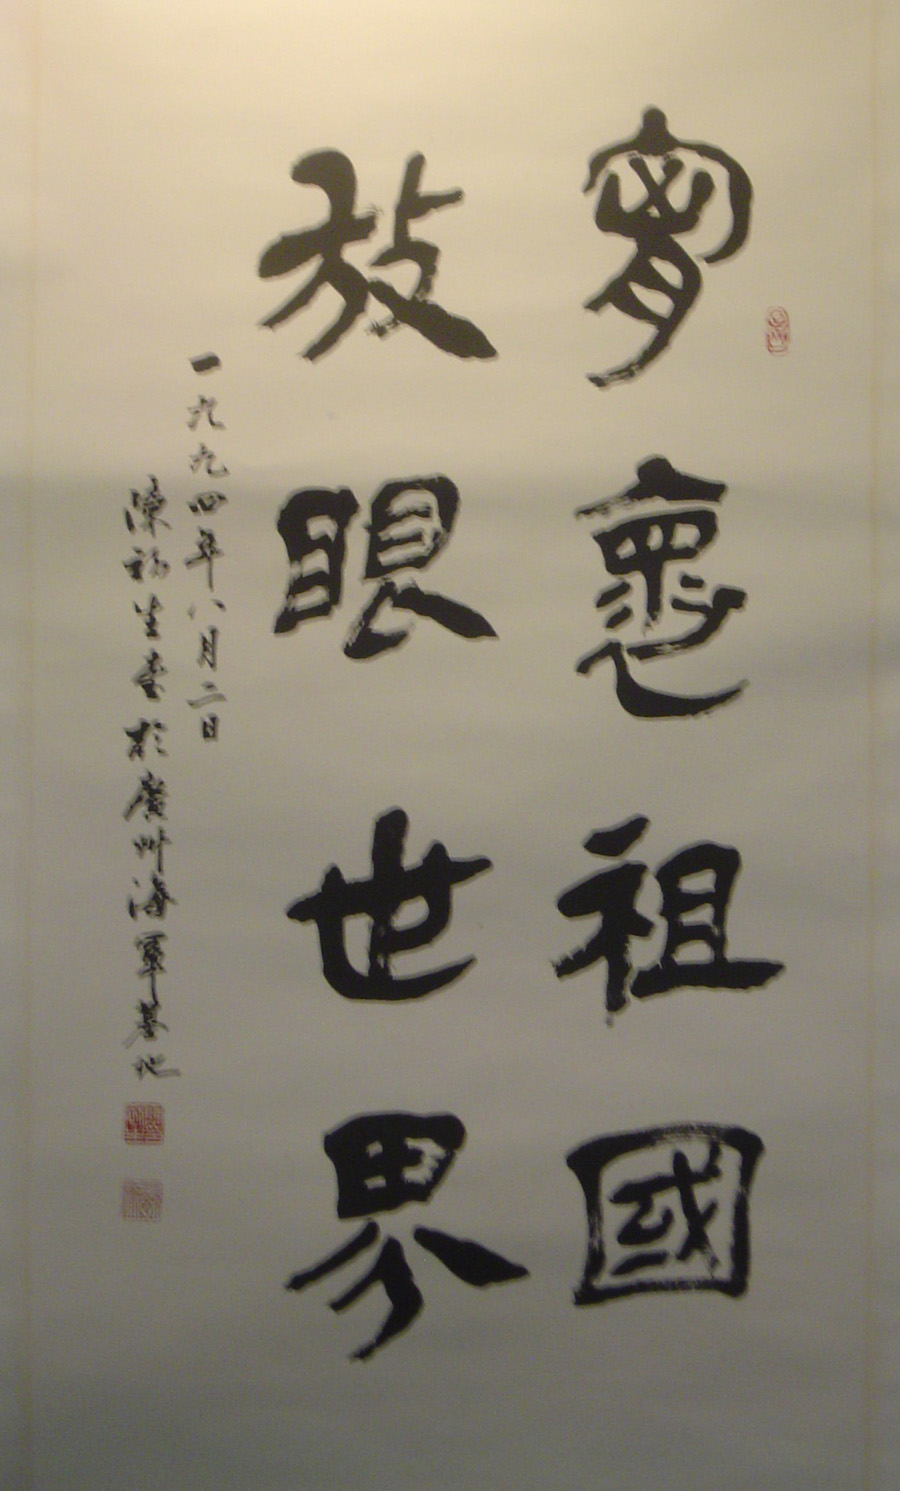 胷懷祖國
放眼世界
一九九四年八月二日
陳福生書於廣州海軍基地